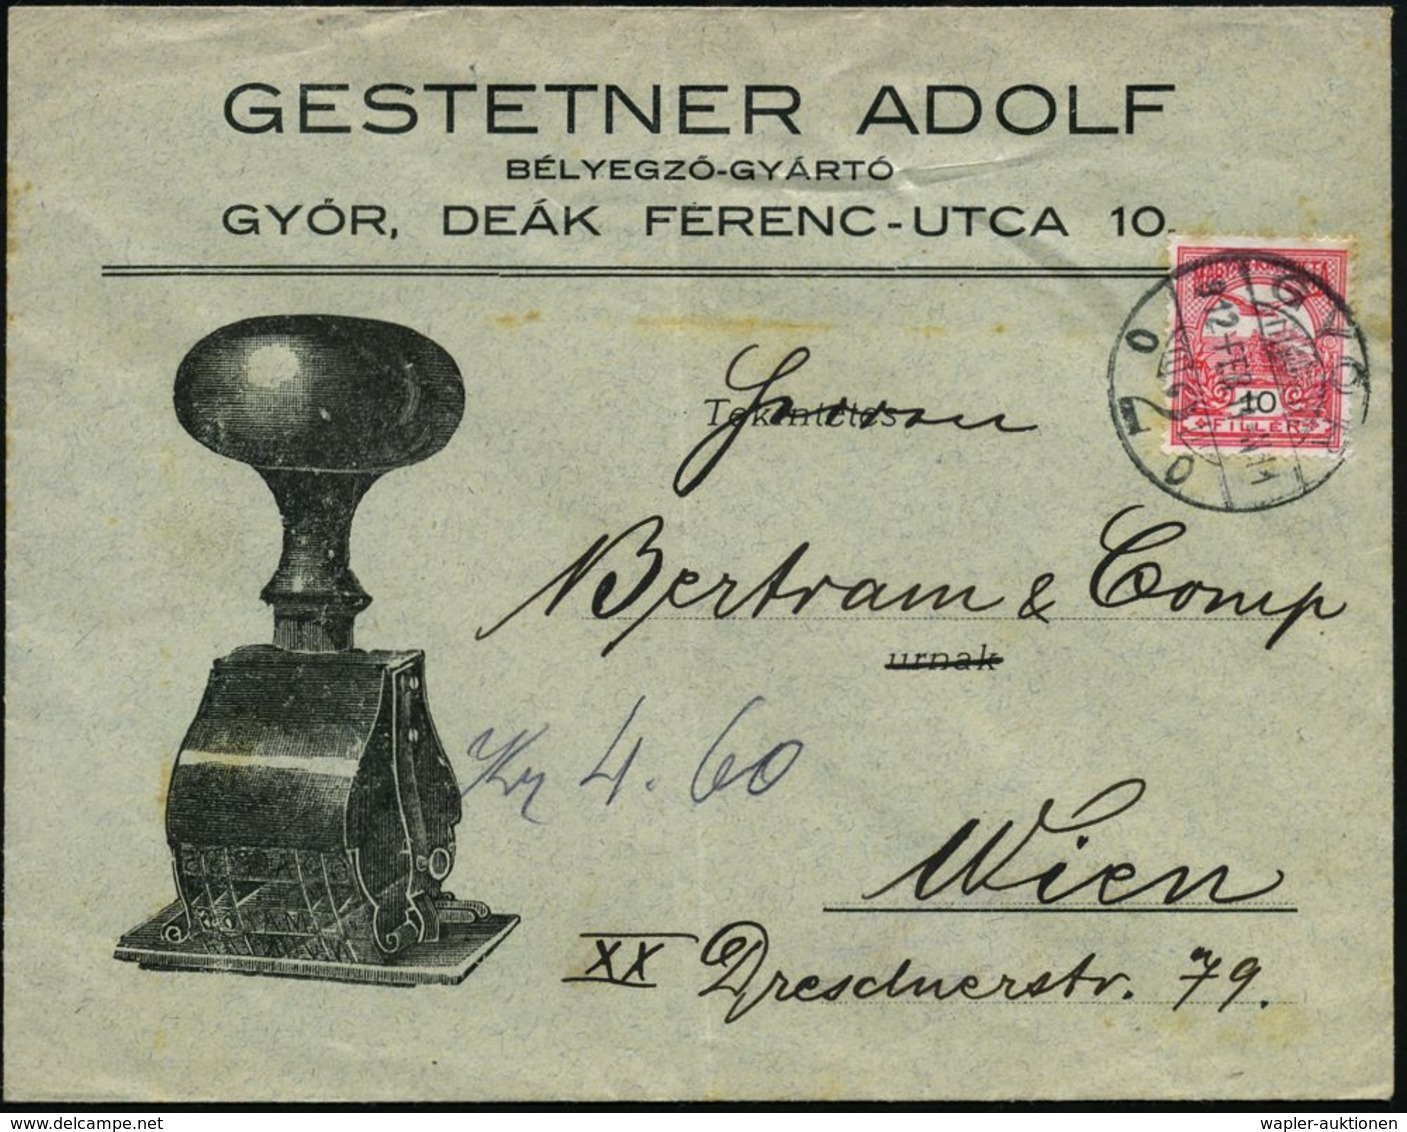 GESTETNER ADOLF
BÉLYEGZŐ-GYÁRTÓ
GYŐR, DEÁK FERENC-UTCA 10.
10
FILLÉR
GYŐR
912 FEB
Tekintetes
Herren
Bertram & Comp
urnak
Kr 4.60
Wien
XX Dresdnerstr. 79.
wapler-auktionen